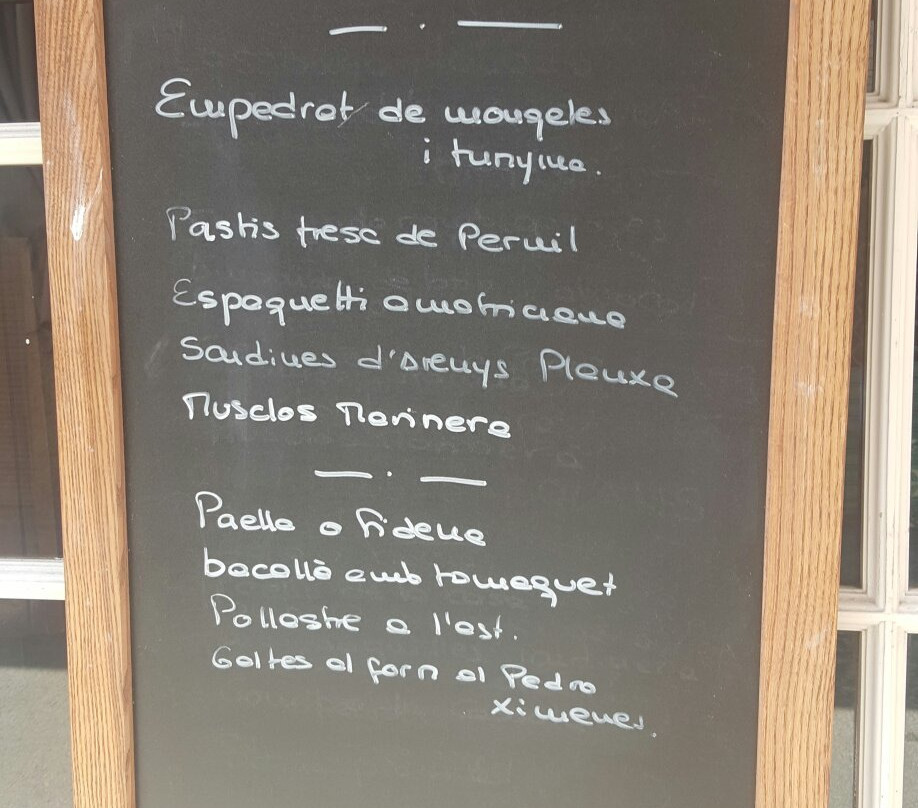 Empedrat de mongeles
i tunyina.
Pastís fresc de Pernil
Espaguetti amatriciana
Sardines d'Arenys Planxa
Musclos Marinera
Paella o Fideua
bacallà amb tomaquet
Pollastre a l'ast.
Galtes al forn al Pedro
Ximenes.